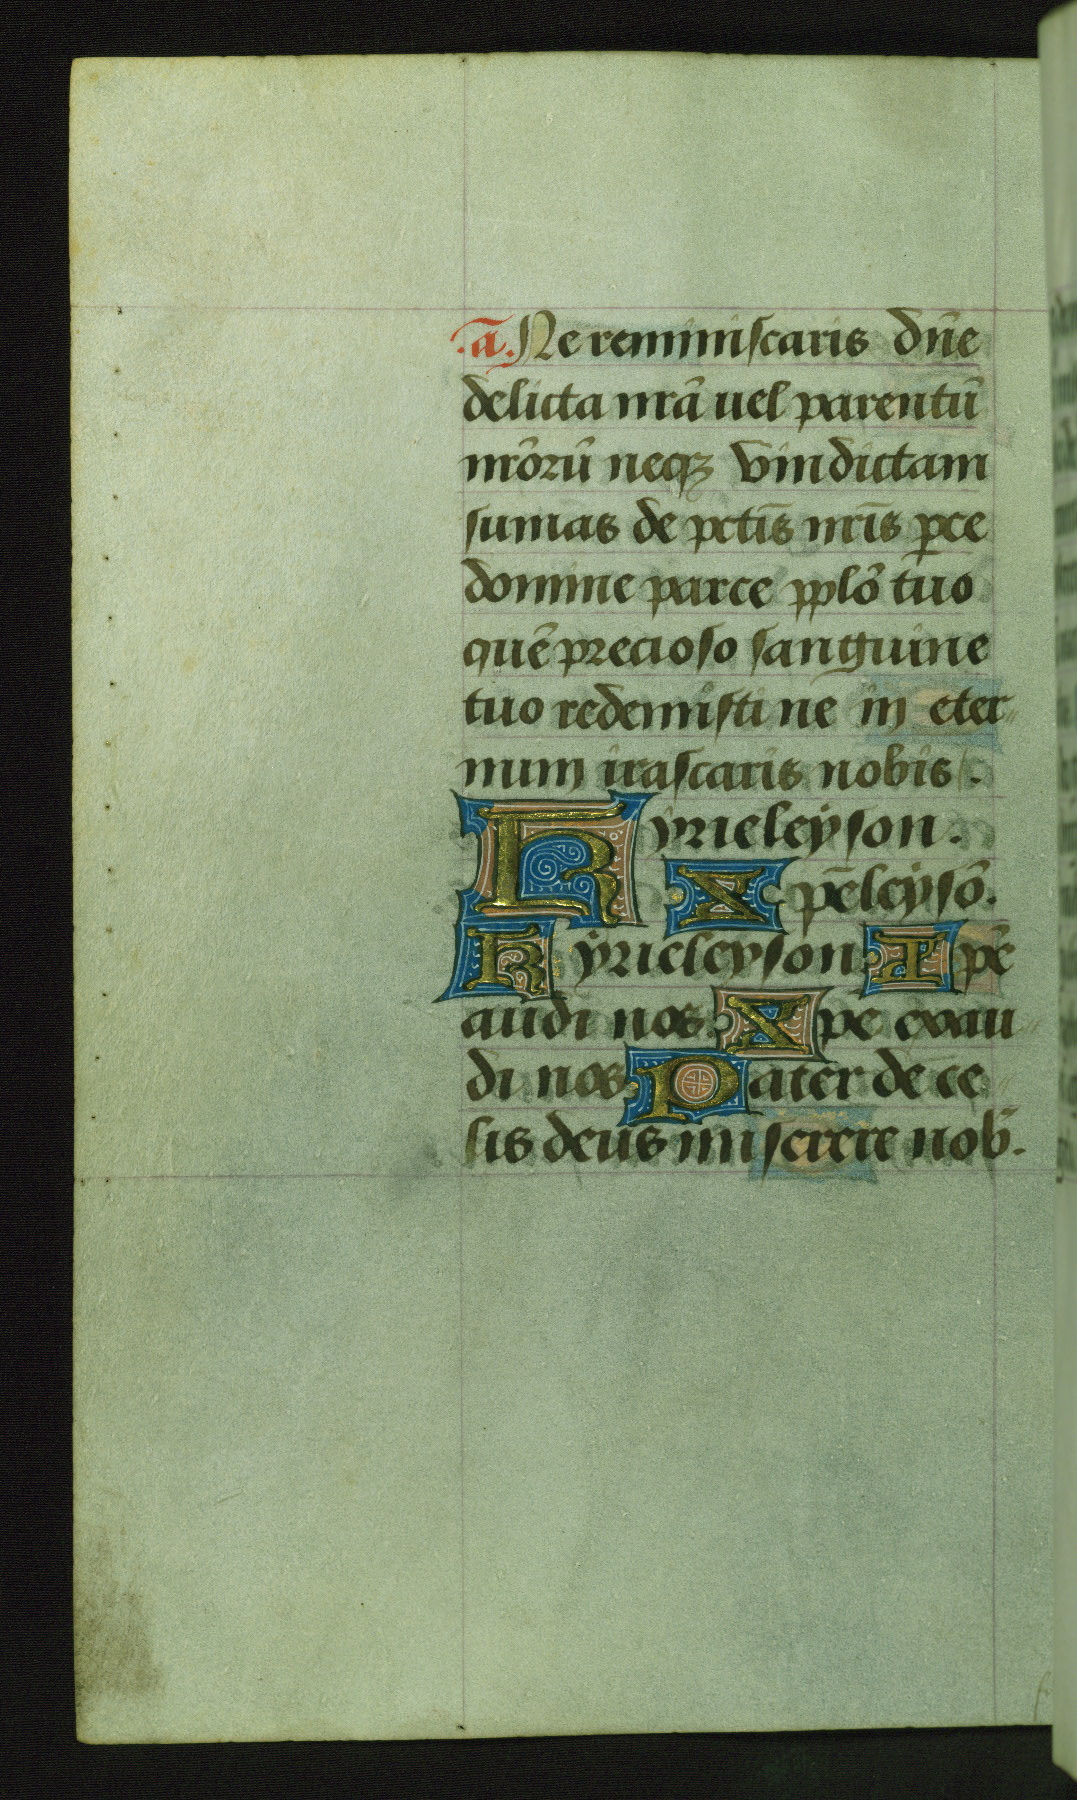 .a. Ne reminiscaris dn̄e
delicta nr̄a uel parentū
nr̄orū neqꝫ vindictam
sumas de pctīs nr̄is ꝑce
domine parce pplō tuo
quē precioso sanguine
tuo redemisti ne in eter
num irascaris nobis.
Kyrieleyson.
Xp̄eleysō.
Kyrieleyson. Xp̄e
audi nos. Xpe exau
di nos. Pater de ce
lis deus miserere nob̄.